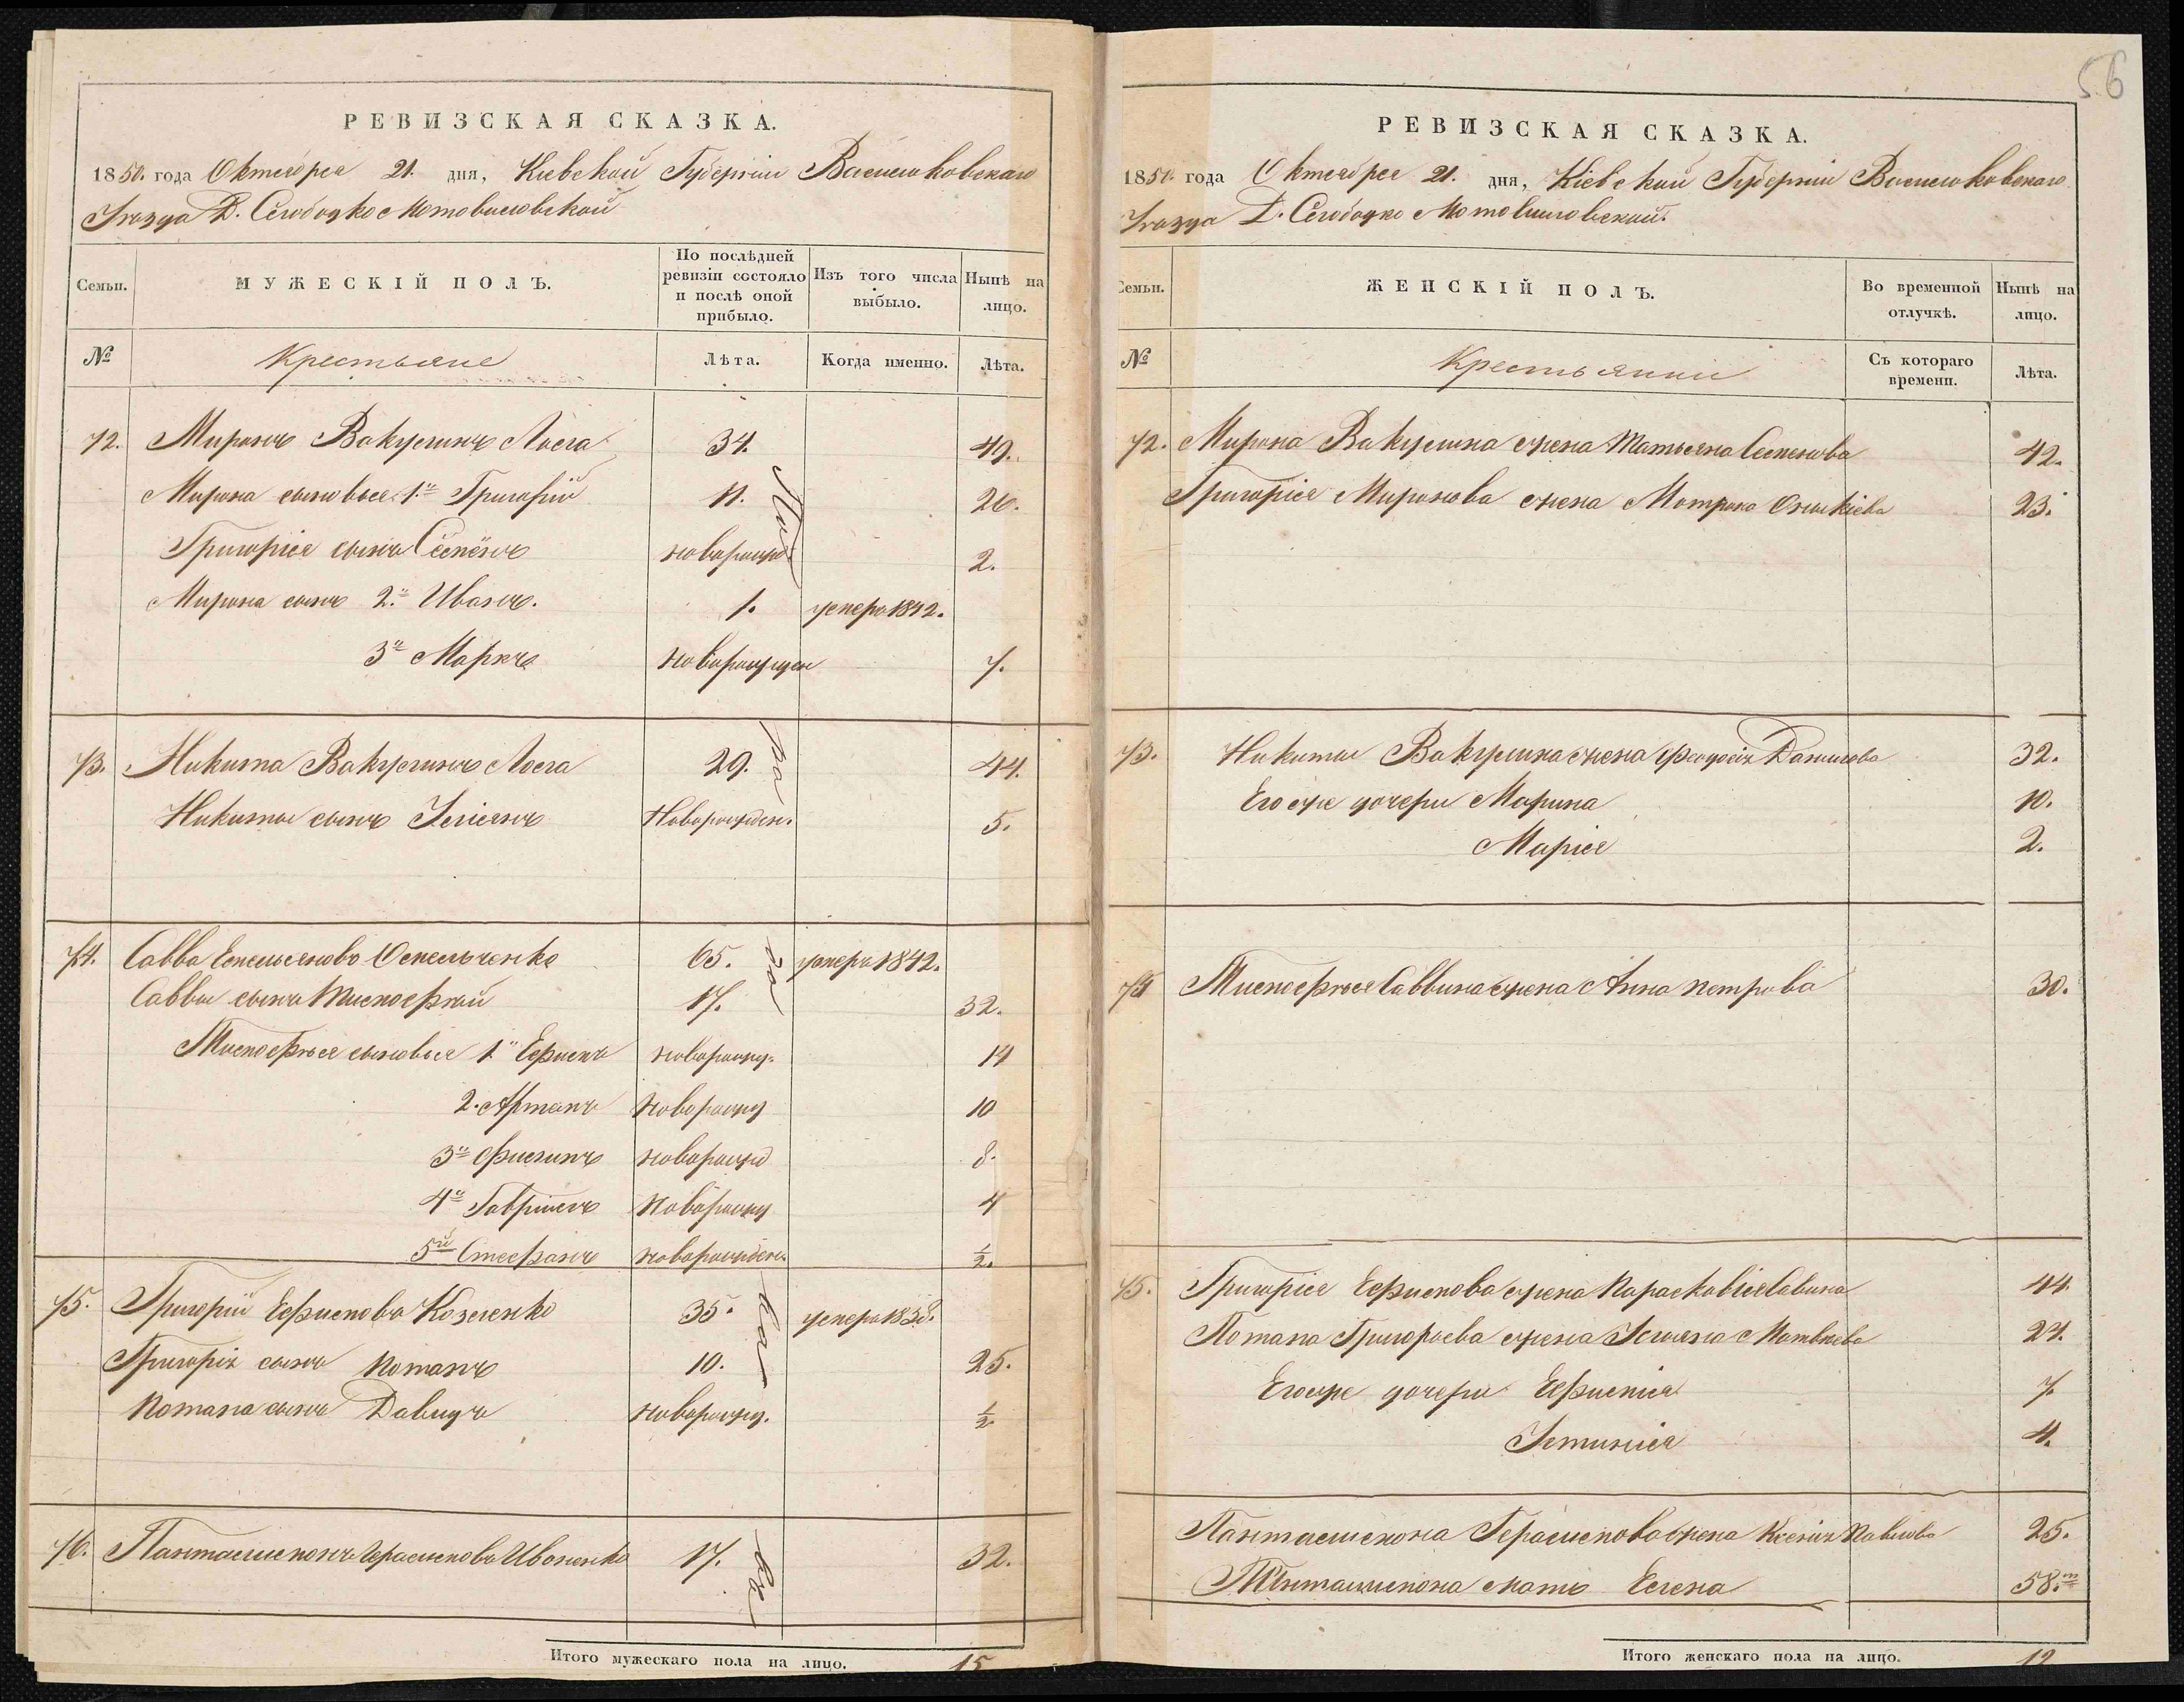 56
РЕВИЗСКАЯ СКАЗКА.
1850. года Октября 21. дня, Киевской Губернiи Васильковскаго
Уѣзда Д. Слободко Мотовиловской
Семьи.
МУЖЕСКІЙ ПОЛЪ.
По послѣдней ревизіи состояло и послѣ оной прибыло.
Изъ того числа выбыло.
Нынѣ на лицо.
№
Крестьяне
Лѣта.
Когда именно.
Лѣта.
72. Миронъ Вакулинъ 34. 49.
Мирона сыновья 1.й Григорій 11. 26.
Григорія сынъ Семёнъ новорожд 2.
Мирона сынъ 2.й Иванъ. 1. умеръ 1842.
3й Маркъ новорожден 7.
73. Никита Вакулинъ 29. 44.
Никиты сынъ Новорожден. 5.
74. Савва Емельяновъ Омельченко 65. умеръ 1842.
Саввы сынъ Тимофѣй 17. 32.
Тимофѣя сыновья 1й Ефимъ новорожд. 14
2. Артемъ новорожд 10
3й Филипъ новорожд 8.
4й Гавріилъ новорожд 4
5й Стефанъ новорожден. ½.
75. Григорій Ефимовъ Козленко 35. умеръ 1838.
Григорія сынъ Потапъ 10. 25.
Потапа сынъ Давидъ новорожд. ½
76. Пантелимонъ Герасимовъ Иваненко 17. 32.
Итого мужескаго пола на лицо. 15
РЕВИЗСКАЯ СКАЗКА.
1850. года Октября 21. дня, Кіевской Губернiи Васильковскаго
Уѣзда Д. Слободко Мотовиловской.
Семьи.
ЖЕНСКІЙ ПОЛЪ.
Во временной отлучкѣ.
Нынѣ на лицо.
№
Крестьянки
Съ котораго времени.
Лѣта.
72. Мирона Вакулина жена Татьяна Семенова 42.
Григорія Миронова жена Мотрона 23.
73. Никиты Вакулина жена Феодосія Данилова 32.
Его же дочери Марина 10.
Марія 2.
74 Тимофѣя Саввина жена Анна Петрова 30.
75. Григорія Ефимова жена Параскавія Савина 44.
Потапа Григорьева жена Матвѣева 24.
Его же дочери Ефимія 7.
Устинія 4.
Пантелимона Герасимова жена Ксенія Павлова 25.
Пантелимона мать Елена 58.
Итого женскаго пола на лицо. 12